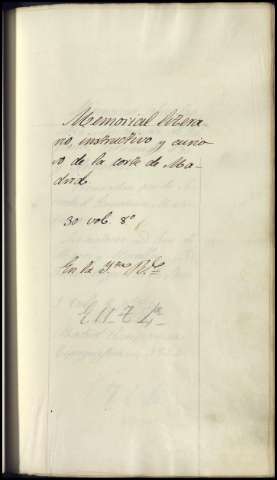 Memorial litera
rio, instructivo y curio
so de la corte de Ma-
drid
30 vol. 8º
En la Ymp. Rl.